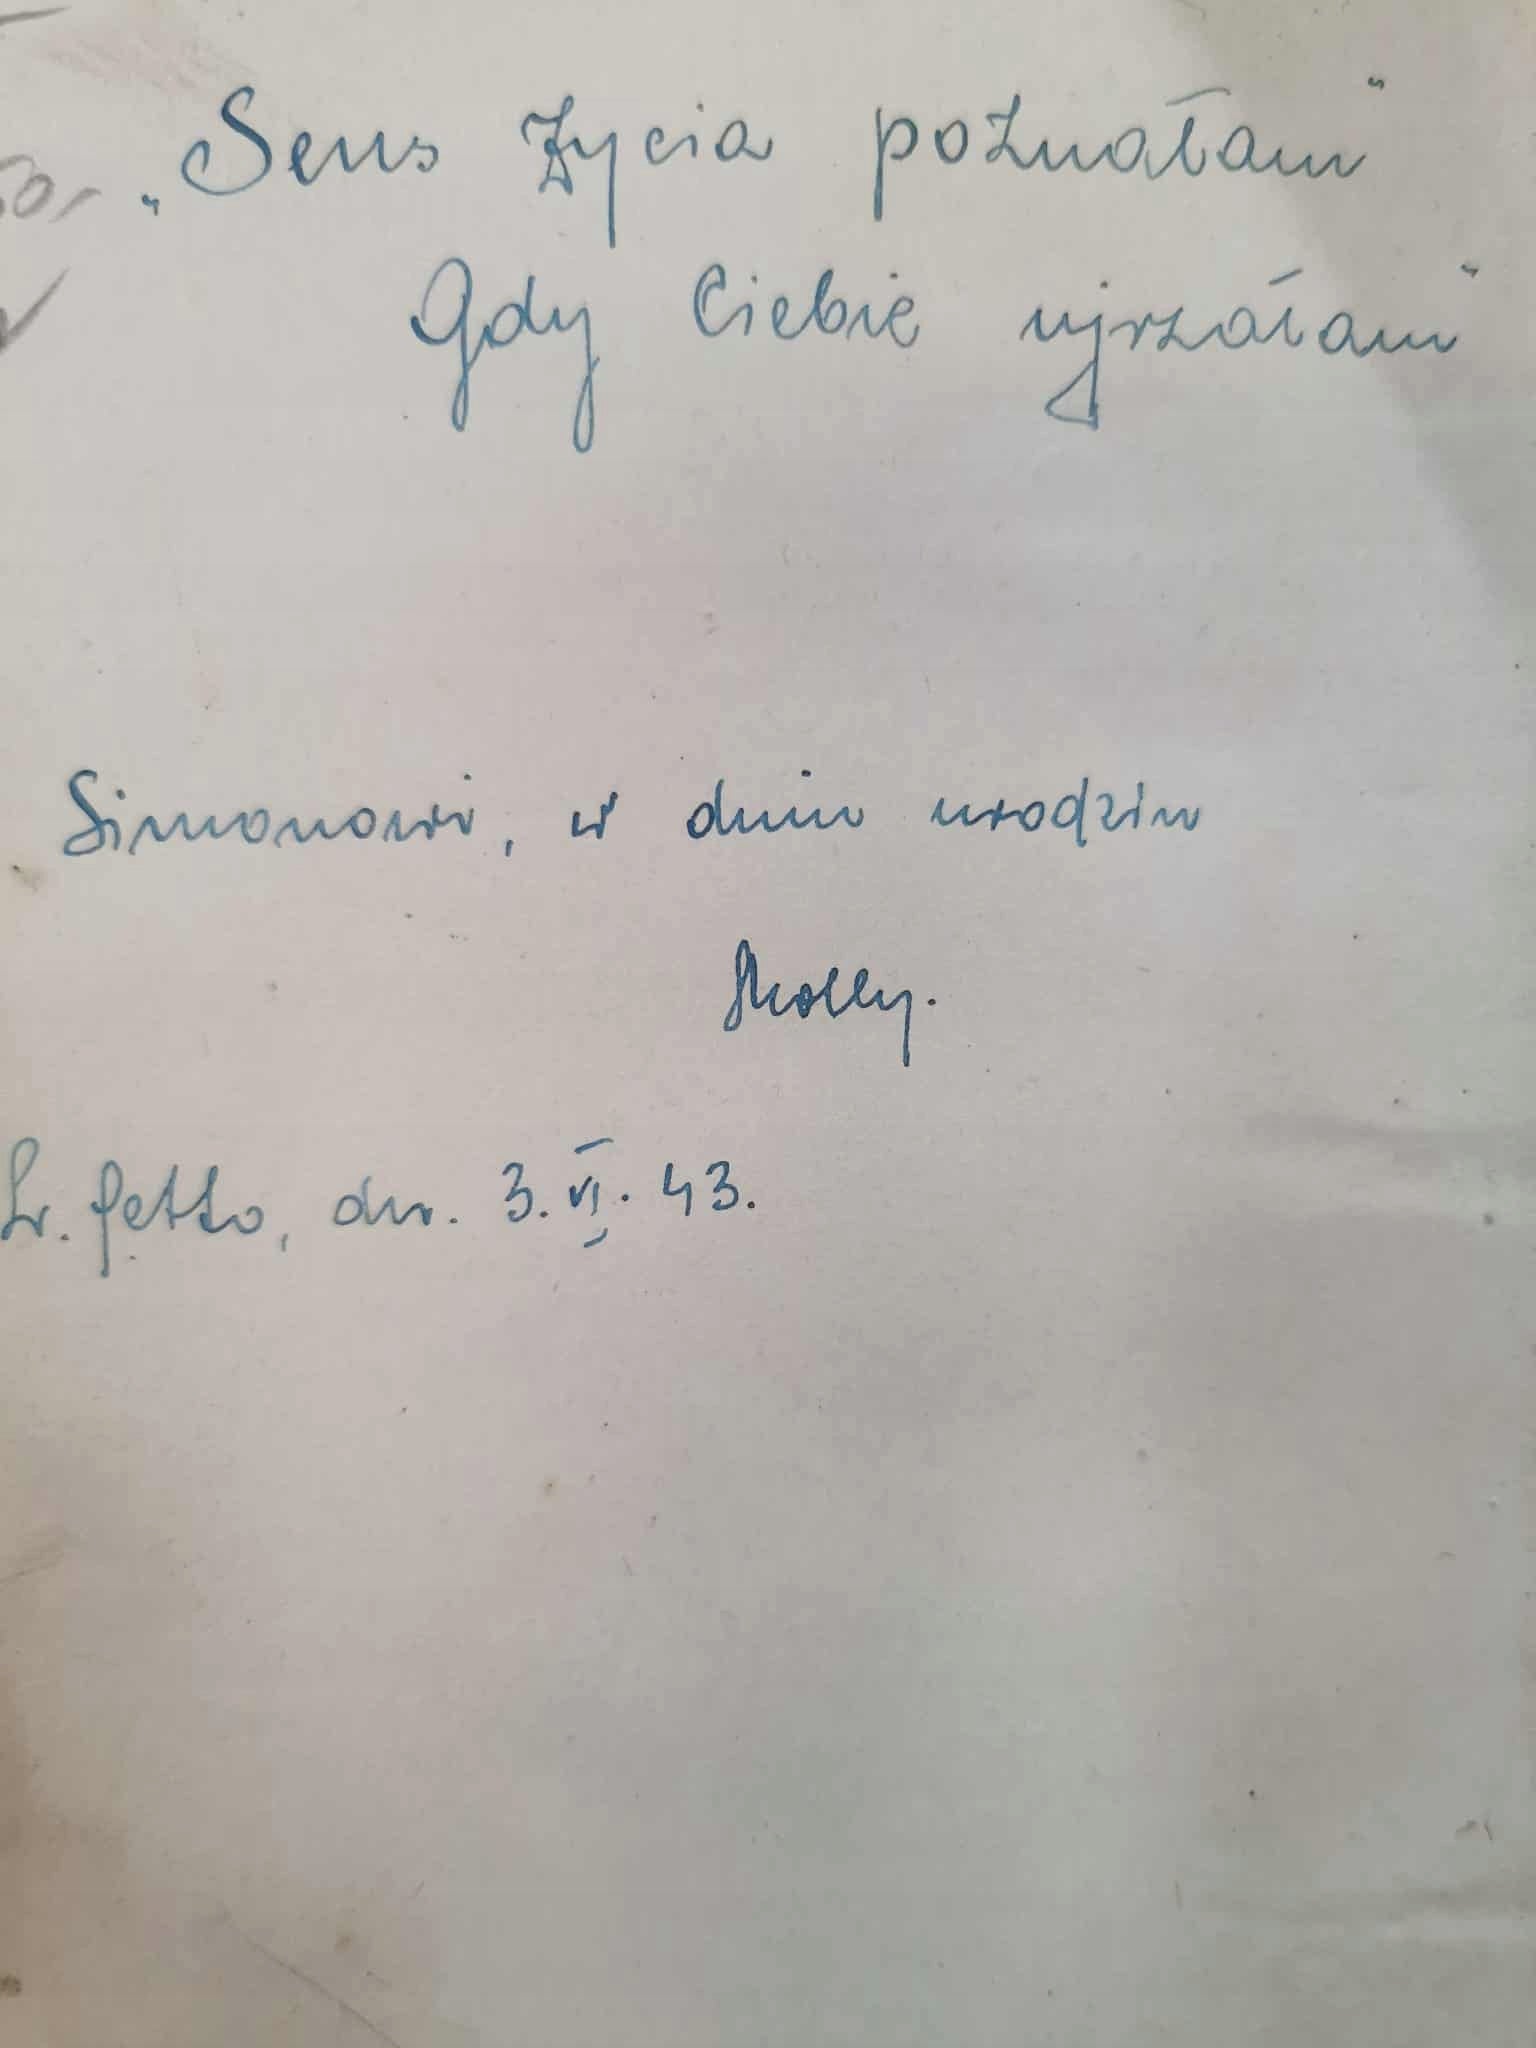 „Sens życia poznałam"
Gdy Ciebie ujrzałam"
Simonowi, w dniu urodzin
Molly.
Lr. Getto, dn. 3. VI. 43.